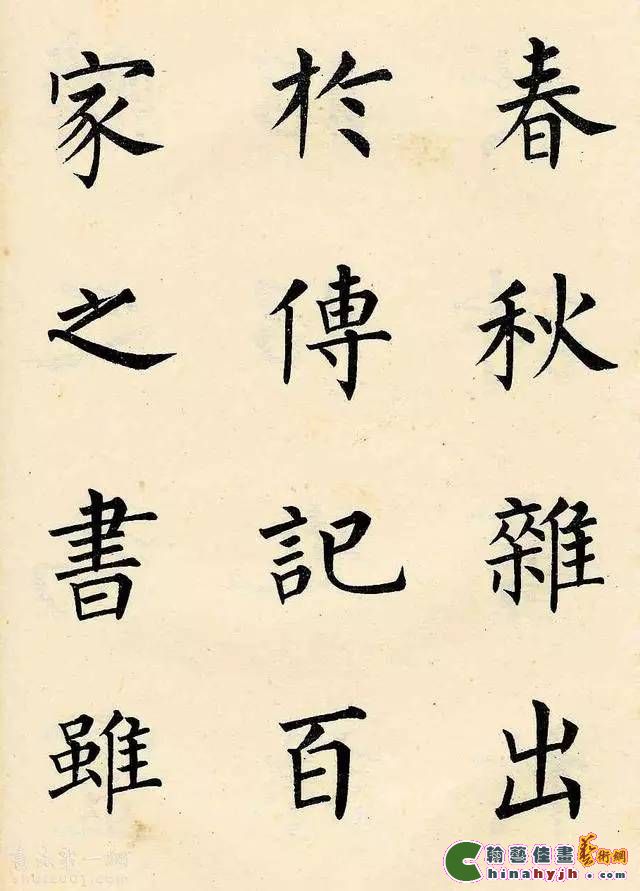 春秋雜出
於傳記百
家之書雖
翰藝佳畫藝術網
Chinahyjh.com